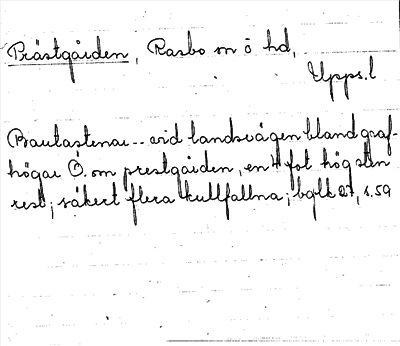 Prästgården, Rasbo sn o hd,
Upps.l
Bautastenar -- vid landsvägen bland graf-
högar Ö. om prestgården, en 4 fot hög sten
rest; säkert flera kullfallna; bglk 27, s.59